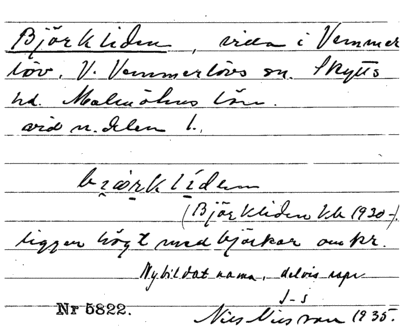 Björkliden, villa i Vemmer
löv, V. Vemmerlövs sn. Skytts
hd. Malmöhus län.
vid n. delen 1.
bi̯œrklídenn
(Björkliden kb 1930-).
ligger högt med björkar omkr.
Nybildat namn, delvis uppk.
J-s
Nr 5822. Nils Nilsson 1935.